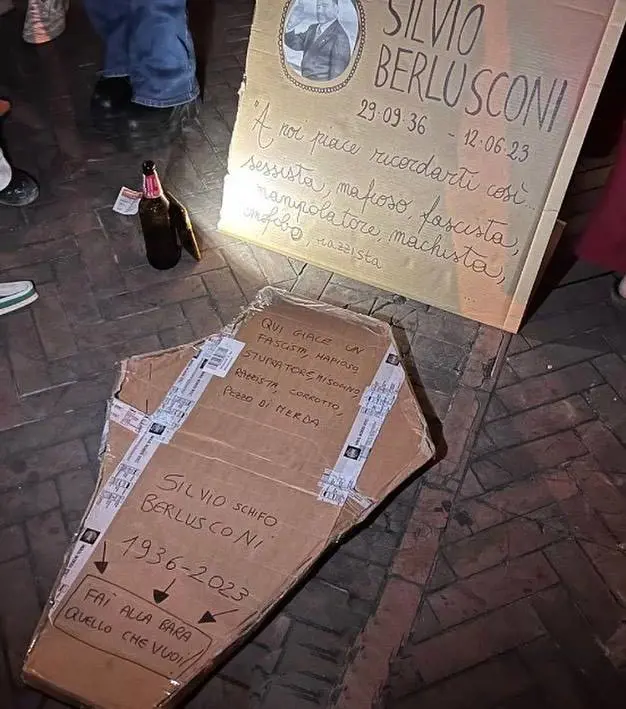 SILVIO
BERLUSCONI
29·09·36 - 12·06·23
"A noi piace ricordarti così...
sessista, mafioso, fascista,
manipolatore, machista,
omofobo, razzista
QUI GIACE UN
FASCISTA, MAFIOSO,
STUPRATORE, MISOGINO,
RAZZISTA, CORROTTO,
PEZZO DI MERDA
SILVIO SCHIFO
BERLUSCONI
1936-2023
FAI ALLA BARA
QUELLO CHE VUOI!